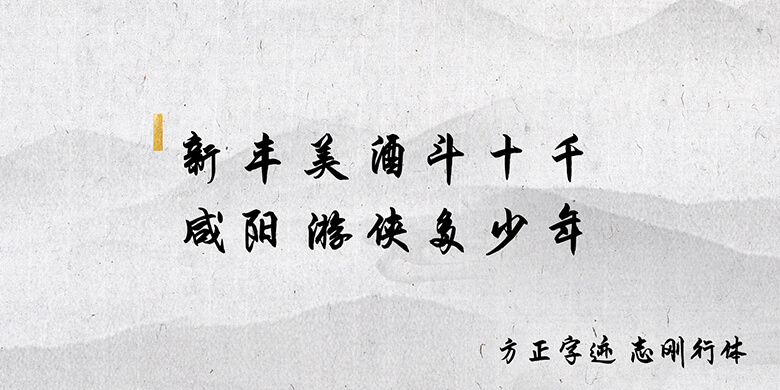 新丰美酒斗十千
咸阳游侠多少年
方正字迹 志刚行体